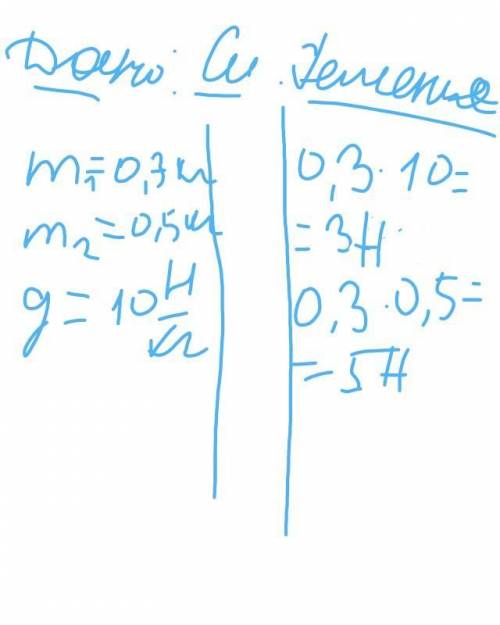 Дано: Си. Решение
m₁=0,3кг
m₂=0,5кг
g=10 Н/кг
0,3·10=
=3Н
0,3·0,5=
=5Н